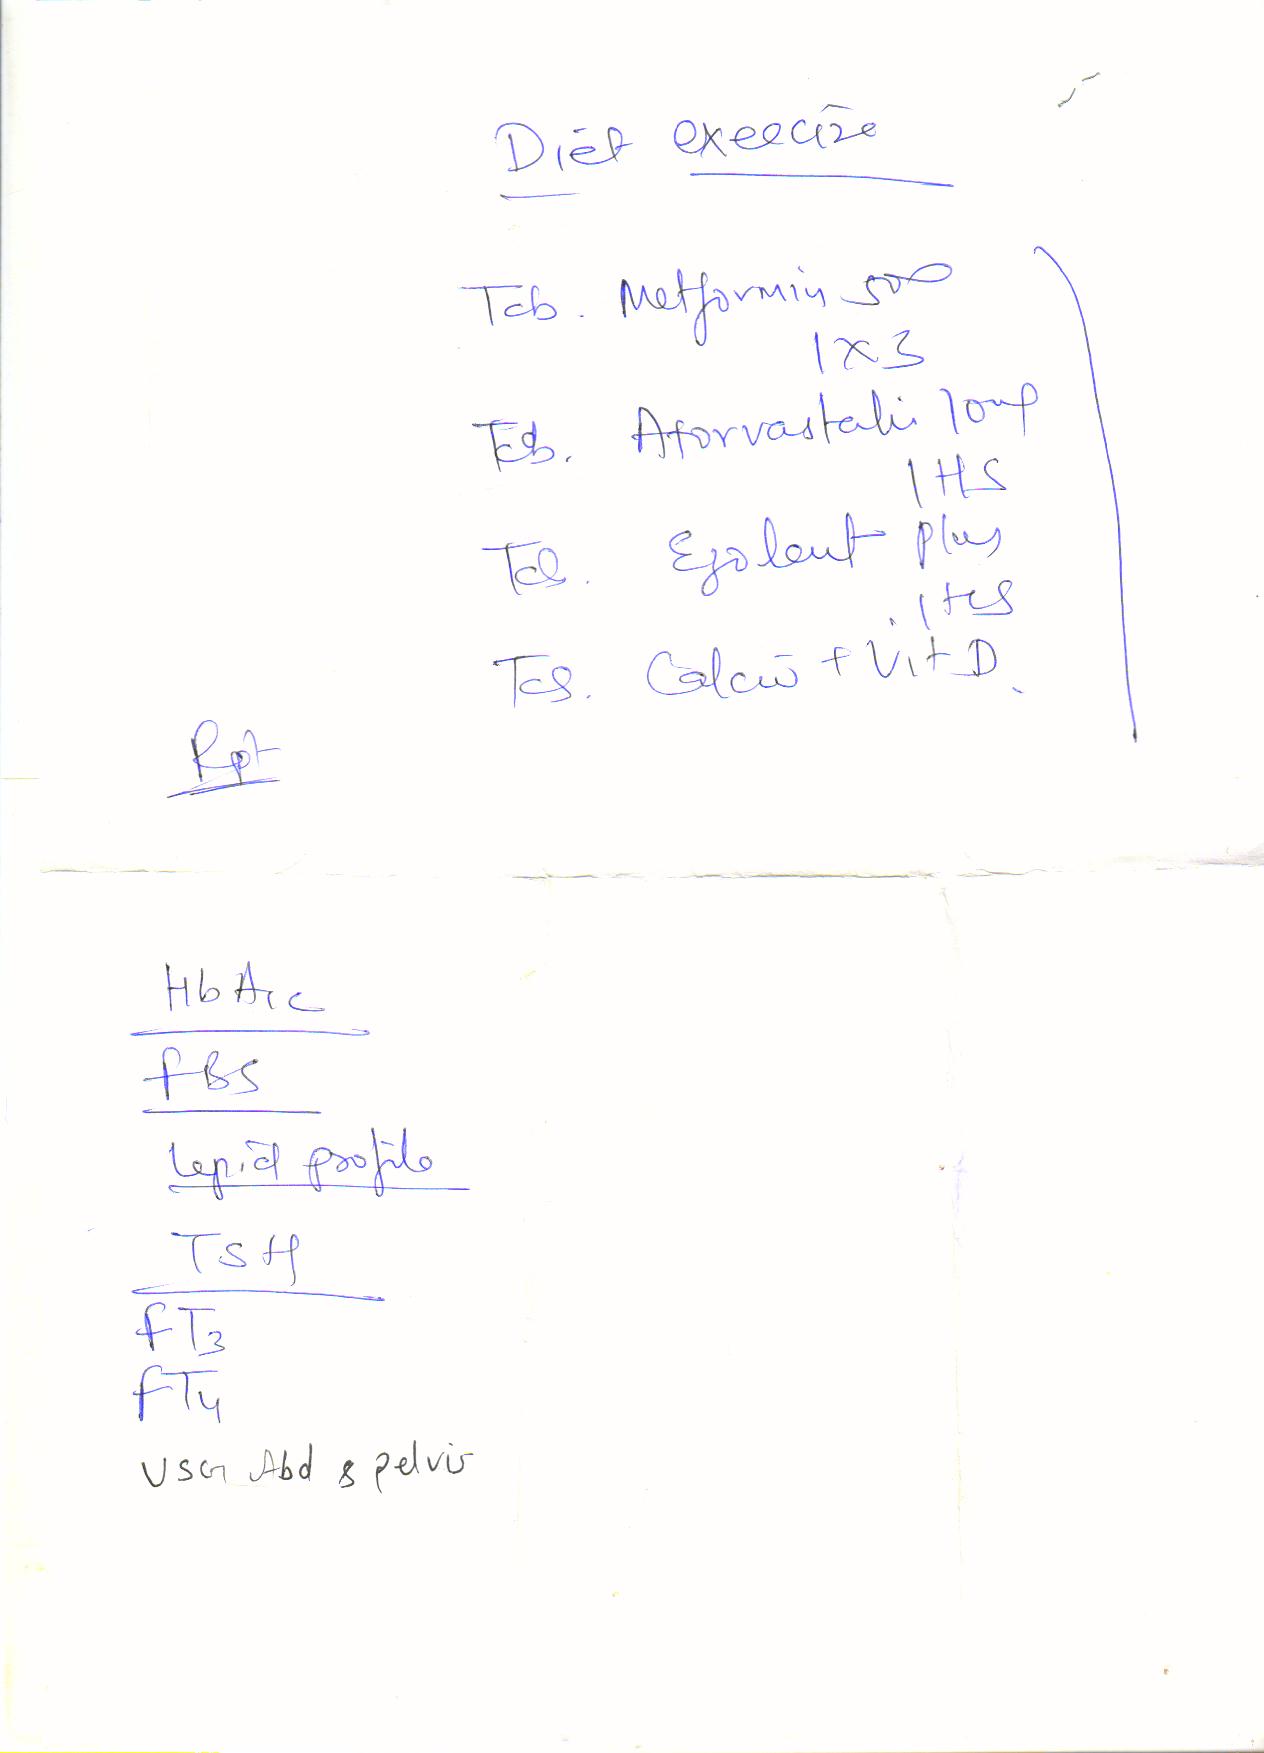 Diet exercise
Tab. Metformin 500
1 x 3
Tab. Atorvastatin 10mg
1 HS
Tab. plus
1 HS
Tab. Calciu + Vit D
Rpt
HbA1c
FBS
Lipid profile
TSH
FT3
FT4
USG Abd & pelvis